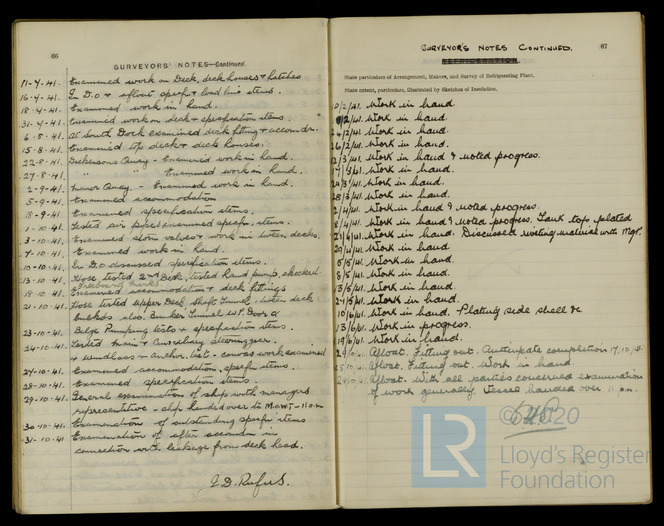 66
SURVEYORS' NOTES—Continued.
11-4-41. Examined work on Deck, deck houses & hatches
16-4-41. In D.O & afloat specifn & load line items.
18-4-41. Examined work in hand.
31-7-41. Examined work on deck & specification items.
6-8-41. At South Dock examined deck fitting & accomdn.
15-8-41. Examined top deck & deck houses.
22-8-41. Dickersons Quay - Examined work in hand.
27-8-41. " " Examined work in hand.
2-9-41. Manor Quay. - Examined work in hand.
5-9-41. Examined accommodation
18-9-41. Examined specification items.
1-10-41. Tested air pipes examined specifn. items.
3-10-41. Examined storm valves & work in tween decks.
7-10-41. Examined work in hand.
10-10-41. In D.O discussed specification items.
13-10-41. Hose tested 2nd Deck, tested hand pump, checked
Freeboard marks.
18-10-41. Examined accommodation & deck fittings
21-10-41. Hose tested upper Deck, Shaft Tunnel, tween deck
bulkhds also. Bunker Tunnel W.T. Door &
Bilge Pumping tests & specification items.
23-10-41. Tested main & auxiliary steering gear
24-10-41. & windlass & anchor test - canvas work examined
27-10-41. Examined accommodation, specifn. items.
28-10-41. Examined specification items.
29-10-41. General examination of ship with managers
representative - ship handed over to M.O.W.T - 11 a.m
30-10-41. Examination of outstanding specifn items
31-10-41. Examination of after accomdn in
connection with leakage from deck head.
J. D. Rufus.
67
SURVEYOR'S NOTES CONTINUED.
State particulars of Arrangement, Makers, and Survey of Refrigerating Plant.
State extent, particulars, illustrated by Sketches of Insulation.
10/2/41. Work in hand.
/2/41. Work in hand.
24/2/41. Work in hand.
26/2/41. Work in hand.
12/3/41. Work in hand & noted progress.
17/3/41. Work in hand.
24/3/41. Work in hand.
28/3/41. Work in hand.
2/4/41. Work in hand & noted progress.
8/4/41. Work in hand & noted progress. Tank top plated
21/4/41. Work in hand. Discussed riveting material with Mgr.
29/4/41. Work in hand.
5/5/41. Work in hand.
8/5/41. Work in hand.
13/5/41. Work in hand.
27/5/41. Work in hand.
10/6/41. Work in hand. Plating side shell &c
13/6/41. Work in progress.
19/6/41. Work in hand.
Afloat. Fitting out. Anticipate completion 17/10/41.
Afloat. Fitting out. Work in hand
Afloat. With all parties concerned examination
of work generally. Vessel handed over 11 a.m.
2020
LR
Lloyd's Register
Foundation